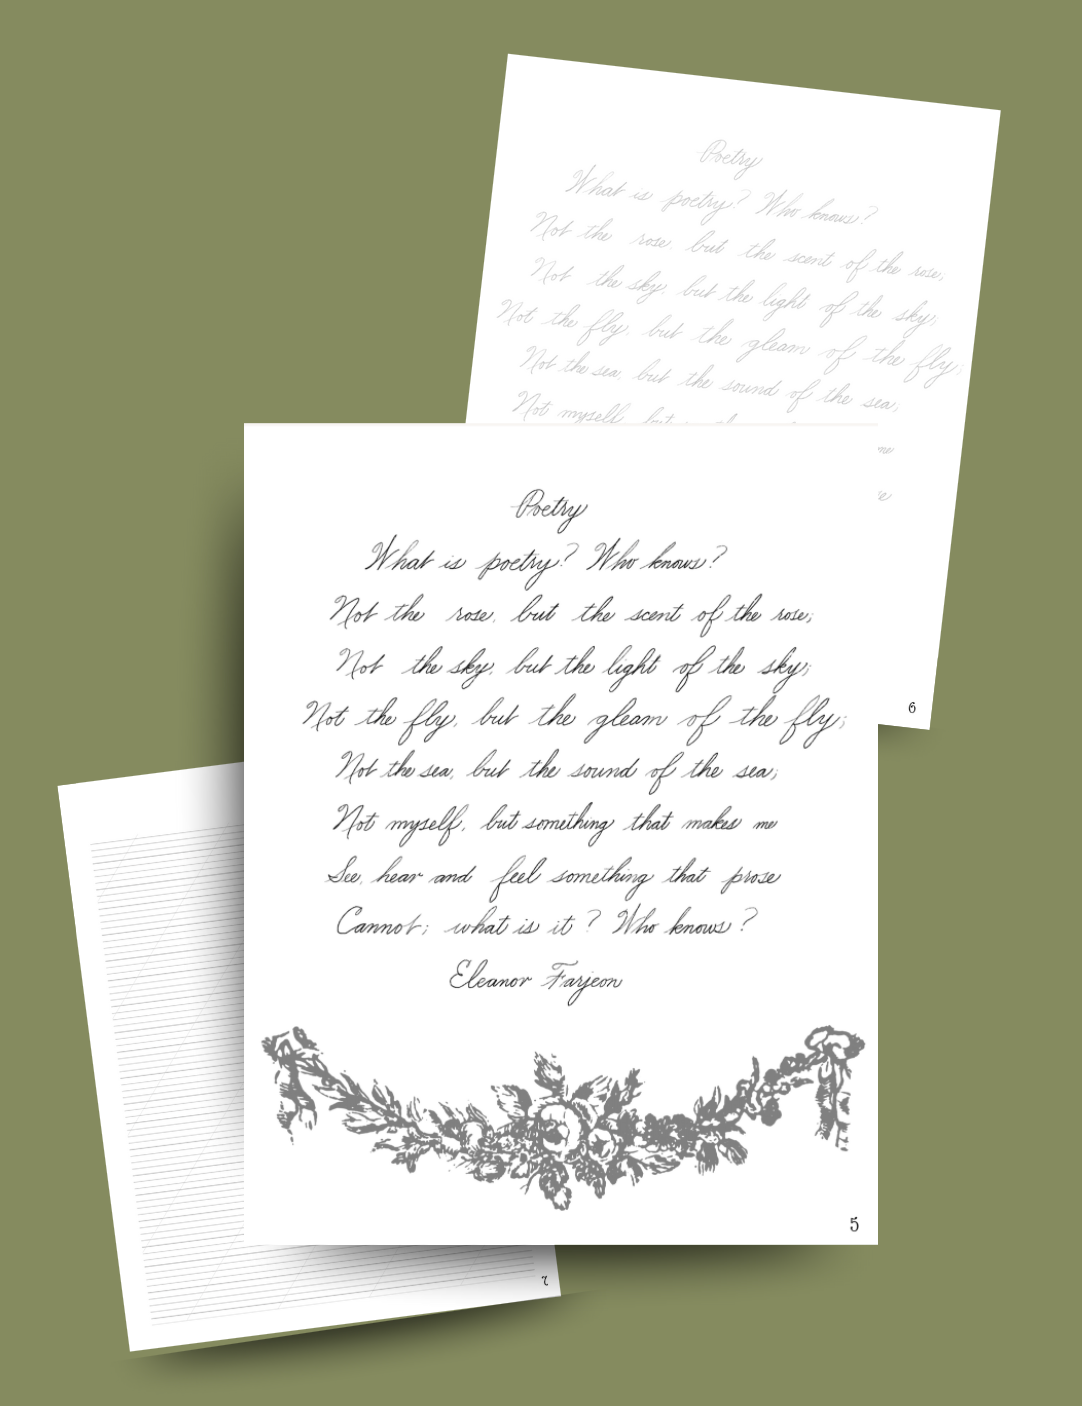 Poetry
What is poetry? Who knows?
Not the rose, but the scent of the rose;
Not the sky, but the light of the sky;
Not the fly, but the gleam of the fly;
Not the sea, but the sound of the sea,
Not myself, but
me
e
6
Poetry
What is poetry? Who knows?
Not the rose, but the scent of the rose;
Not the sky, but the light of the sky;
Not the fly, but the gleam of the fly;
Not the sea, but the sound of the sea;
Not myself, but something that makes me
See, hear and feel something that prose
Cannot; what is it? Who knows?
Eleanor Farjeon
5
7